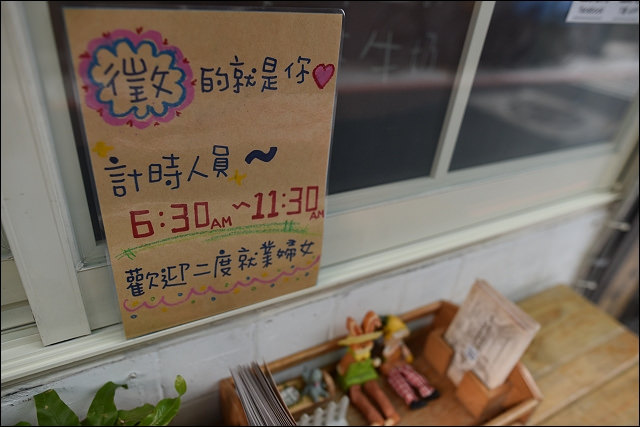 徵的就是你
計時人員~
6:30AM~11:30AM
歡迎二度就業婦女